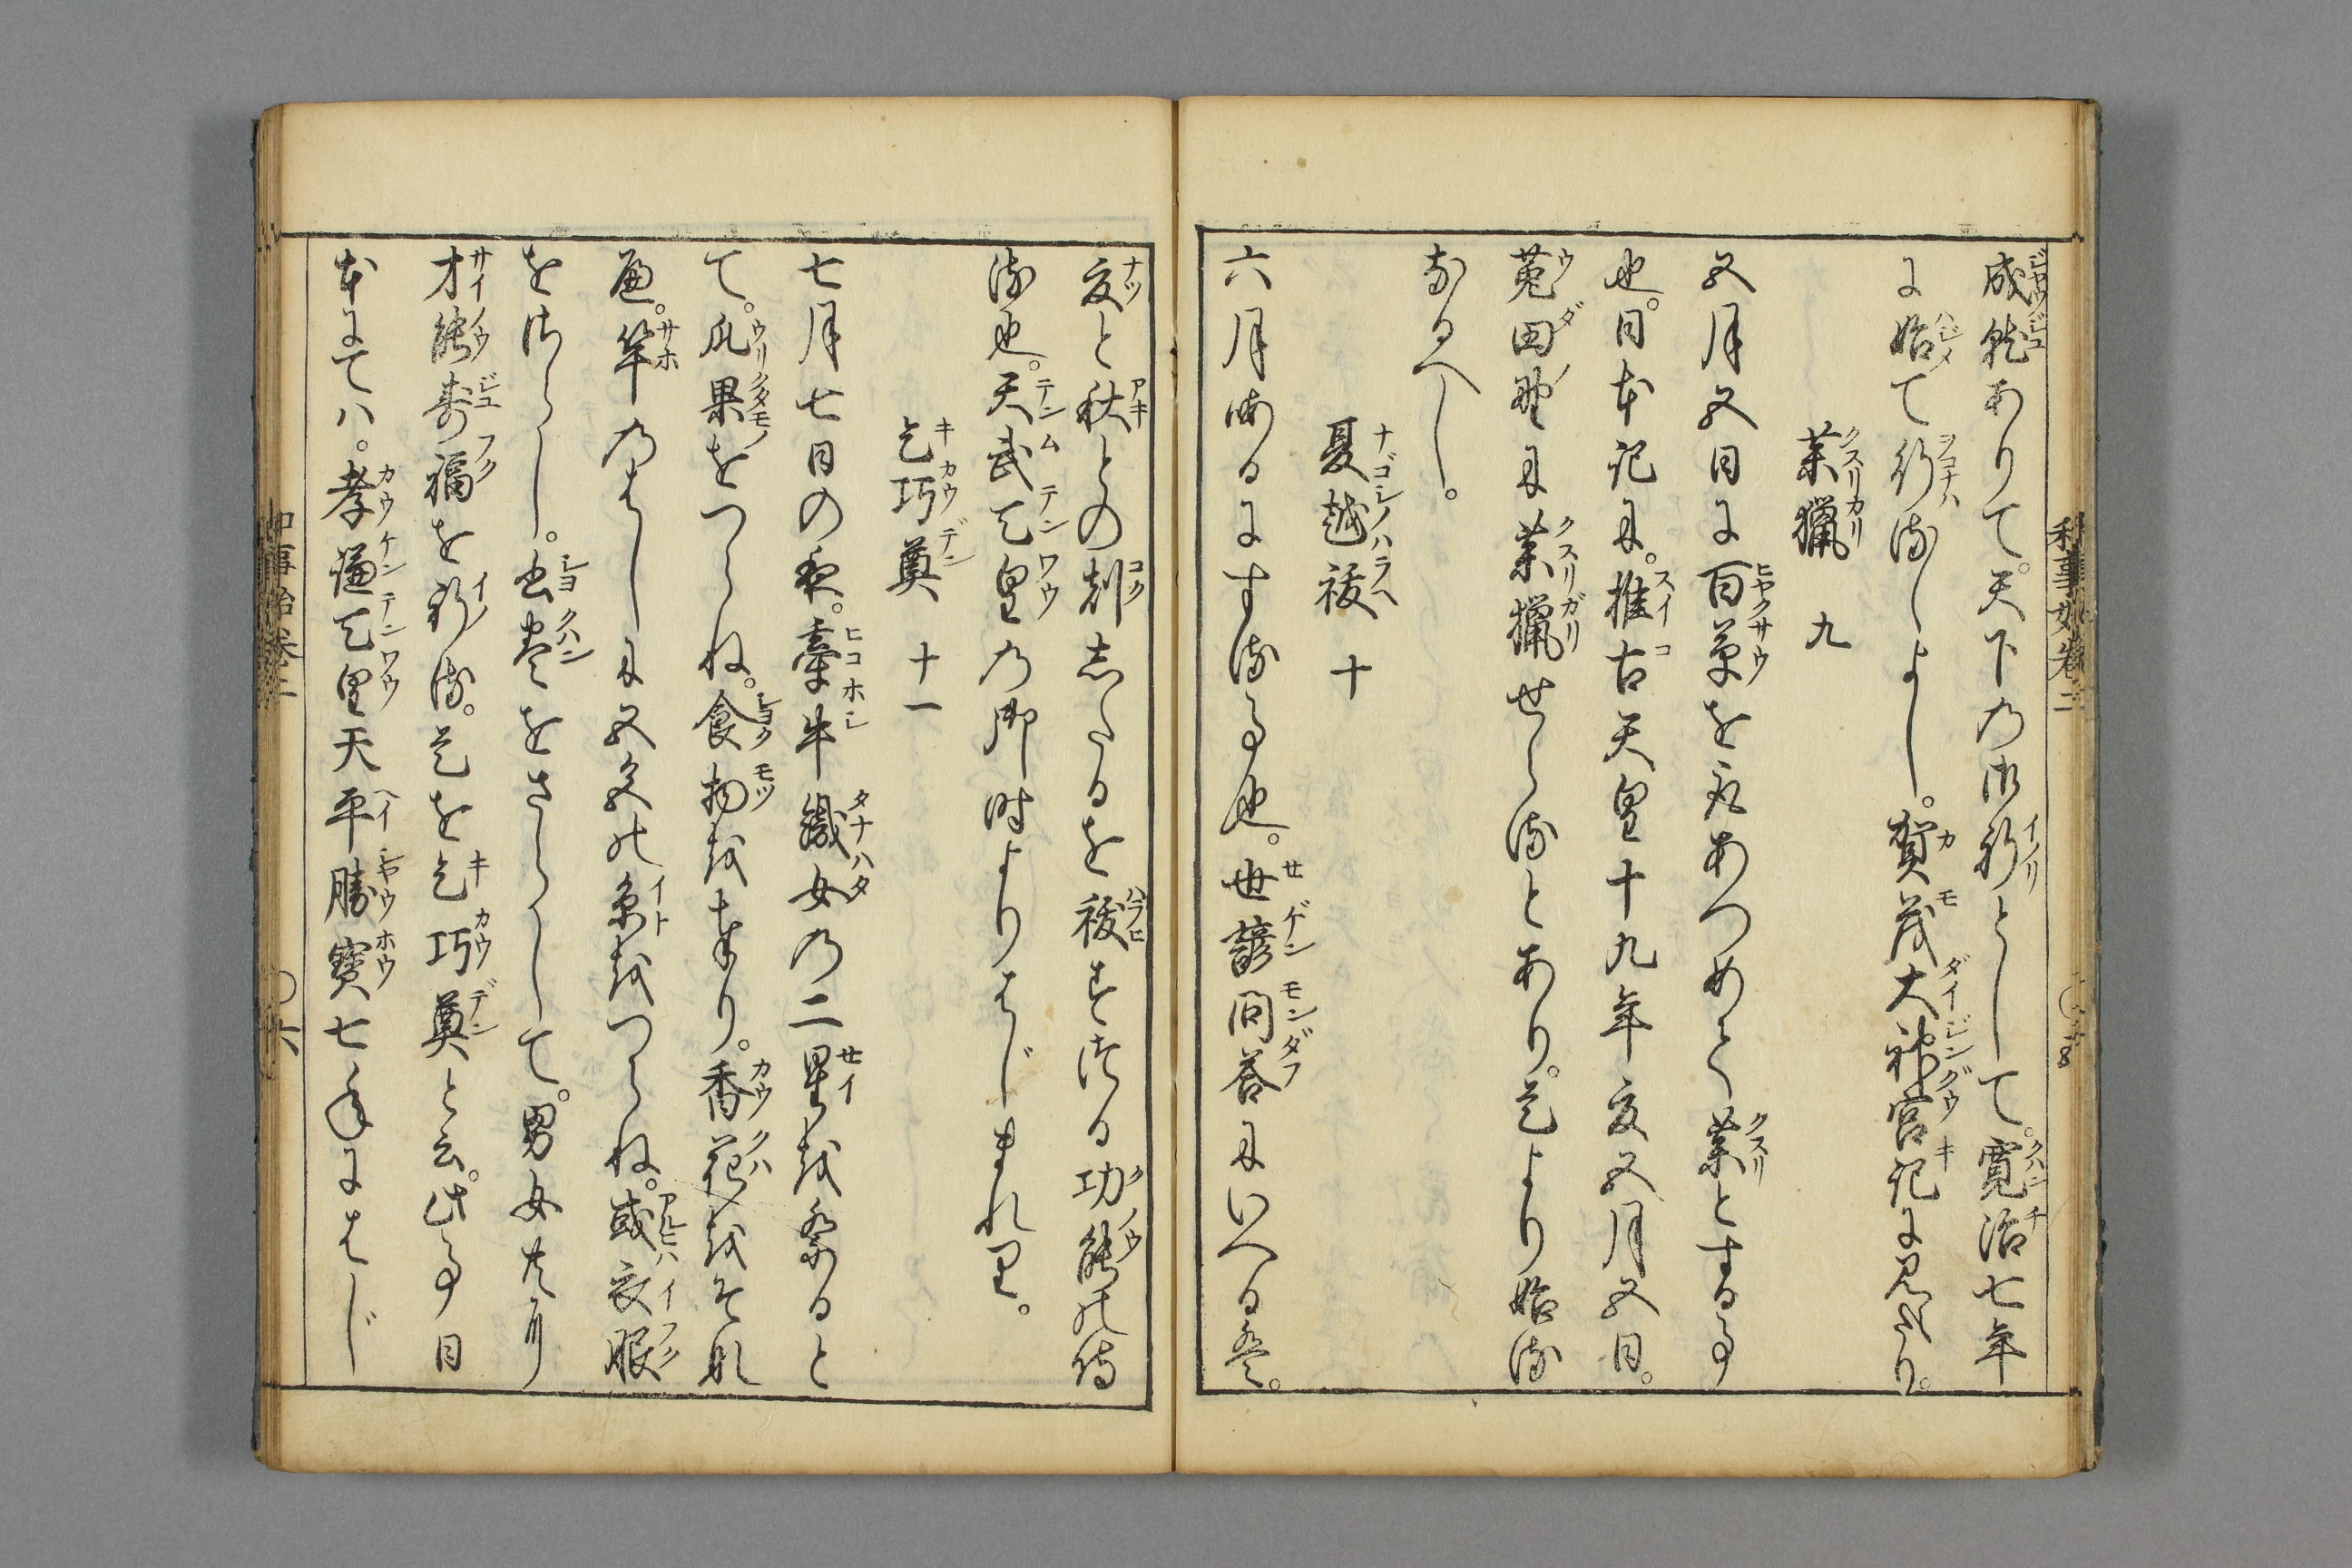 成就ありて。天下の御祈として。寛治七年
に始て行るよし。賀茂大神宮記に見えたり。
薬猟 九
五月五日に百草を取あつめて薬とする事
也。日本記に。推古天皇十九年夏五月五日。
菟田野に薬猟せらるとあり。是より始る
なるべし。
夏越祓 十
六月晦日にする事也。世諺問答にいへるは。
夏と秋との剋したるを祓する功能の侍
る也。天武天皇の御時よりはじまれり。
乞巧奠 十一
七月七日の夜。牽牛織女の二星を祭ると
て。瓜果をつらね。食物を奉り。香花をそなへ
竿のはしに五色の糸をつらね。或衣服
をぬらし。書巻をさらしして。男女
才能寿福を祈る。是を乞巧奠と云。此事日
本にては。孝謙天皇天平勝寳七年にはじ
和事始巻二
和事始巻二 〇六